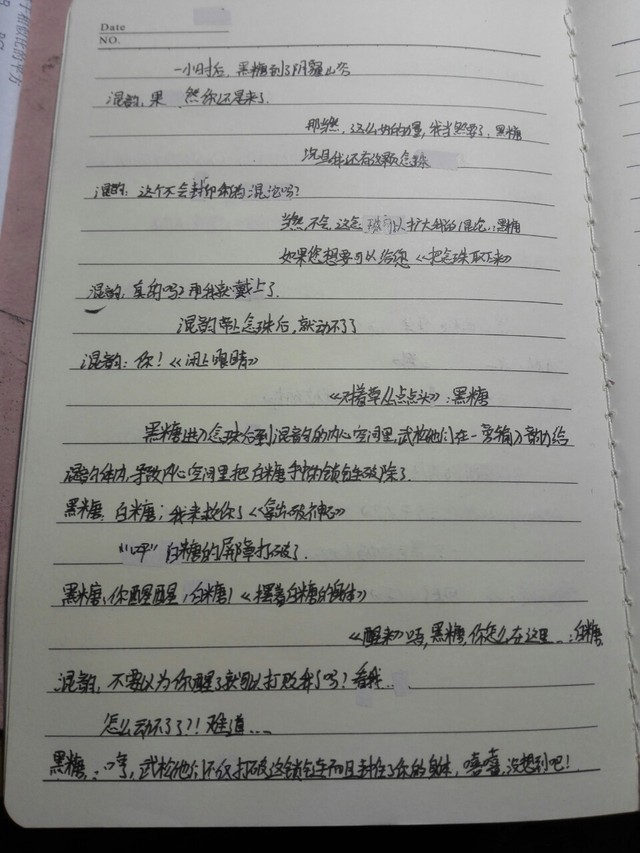 Date
NO.
一小时后，黑糖到了阴霾山谷
混韵：果然你还是来了.
那当然，这么好的力量，我当然要了：黑糖
况且我还有这颗念珠
混韵：这个不会封印我的混沌吗？
当然不会，这念珠可以扩大我的混沌：黑糖
如果您想要可以给您《把念珠取下来》
混韵：真的吗？那我就戴上了.
混韵带上念珠后，就动不了了
混韵：你！《闭上眼睛》
《对着草丛点点头》：黑糖
黑糖进入念珠后到混韵的内心空间里，武松他们在一旁输入韵力给
混韵体内，导致内心空间里把白糖手的锁链破除了.
黑糖：白糖；我来救你了《拿出破神》
"呯" 白糖的屏障打破了.
黑糖：你醒醒，白糖！《摆着白糖的身体》
《醒来》唔，黑糖，你怎么在这里…：白糖
混韵：不要以为你醒了就可以打败我了吗？看我…
怎么动不了了？！难道……
黑糖：哼，武松他们不仅打破这锁链而且封住了你的身体，嘻嘻，没想到吧！